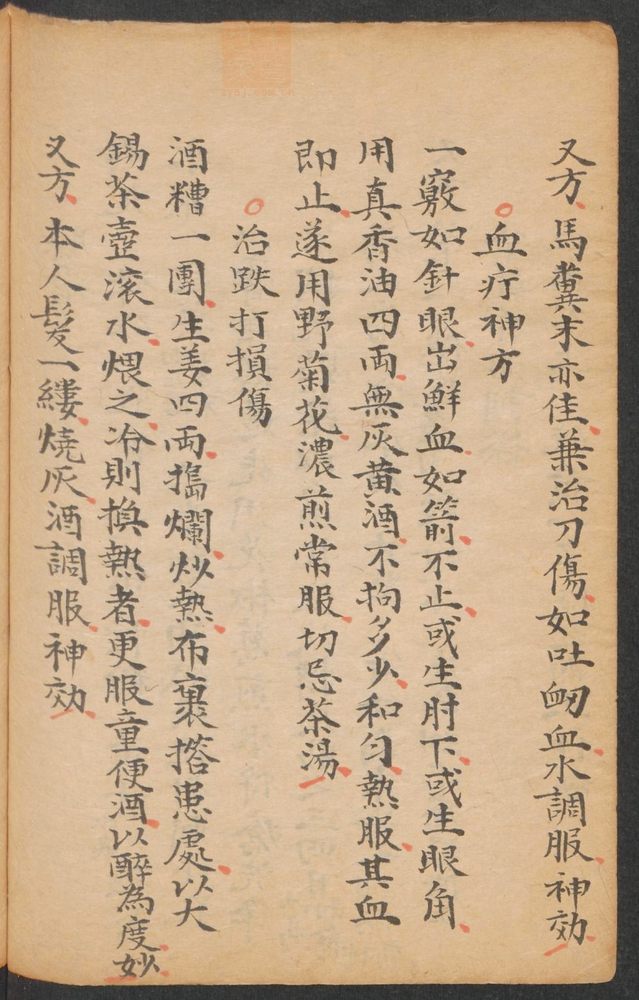 又方馬糞末亦佳兼治刀傷如吐衂血水調服神効
血疔神方
一竅如針眼出鮮血如箭不止或生肘下或生眼角
用真香油四両無灰黄酒不拘多少和匀熱服其血
即止遂用野菊花濃煎常服切忌茶湯
治跌打損傷
酒糟一團生姜四両搗爛炒熱布裹搭患處以大
錫茶壼滚水煨之冷則换熱者更服童便酒以醉為度妙
又方本人髮一縷燒灰酒調服神効